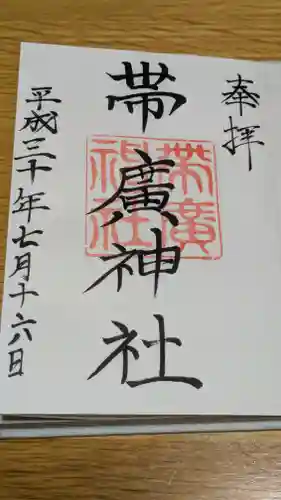 奉拝
帯廣神社
帯廣神社
平成三十年七月十六日